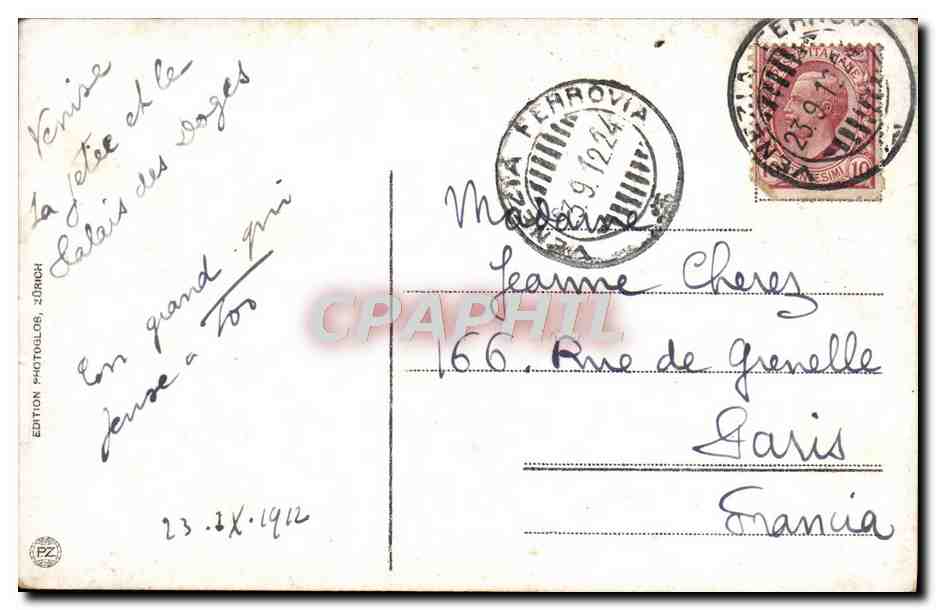 Venise
La jetée et le
Palais des Doges
Ton grand qui
pense a Toi
23.IX.1912
EDITION PHOTOGLOB, ZÜRICH
PZ
VENEZIA FERROVIA
23.9.12.24
VENEZIA FERROVIA
23.9.1
10
Madame
Jeanne Cherez
166. Rue de Grenelle
Paris
Francia
CPAPHIL